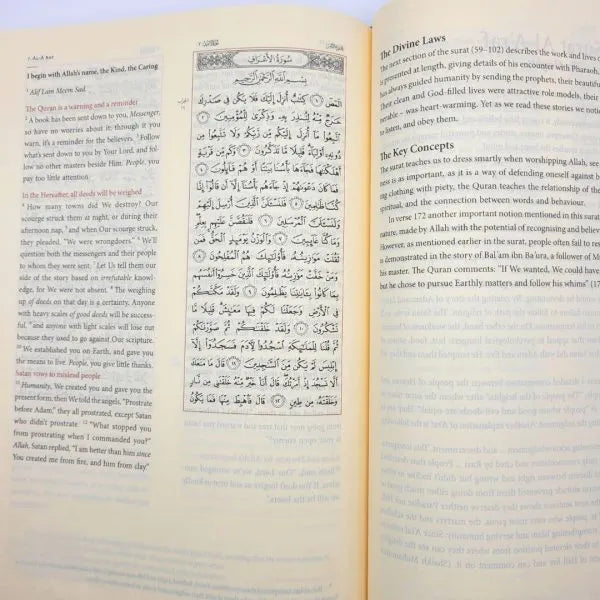 7. AL-A'RAF
I begin with Allah's name, the Kind, the Caring
1 Alif Lam Meem Sad.
The Quran is a warning and a reminder
2 A book has been sent down to you, Messenger,
so have no worries about it: through it you
warn, it's a reminder for the believers. 3 Follow
what's sent down to you by your Lord, and fol-
low no other masters beside Him. People, you
pay too little attention.
In the Hereafter, all deeds will be weighed
4 How many towns did We destroy? Our
scourge struck them at night, or during their
afternoon nap, 5 and when Our scourge struck,
they pleaded, "We were wrongdoers." 6 We'll
question both the messengers and their people
to whom they were sent. 7 Let Us tell them our
side of the story based on irrefutable knowl-
edge, for We were not absent. 8 The weighing
up of deeds on that day is a certainty. Anyone
with heavy scales of good deeds will be success-
ful, 9 and anyone with light scales will lose out
because they used to go against Our scripture.
10 We established you on Earth, and gave you
the means to live. People, you give little thanks.
Satan vows to mislead people
11 Humanity, We created you and gave you the
present form, then We told the angels, "Prostrate
before Adam," they all prostrated, except Satan
who didn't prostrate. 12 "What stopped you
from prostrating when I commanded you?"
Allah, Satan replied, "I am better than him since
You created me from fire, and him from clay"
سُورَةُ الأَعْرَافِ
بِسْمِ اللَّهِ الرَّحْمَنِ الرَّحِيمِ
الٓمٓصٓ ١ كِتَابٌ أُنزِلَ إِلَيْكَ فَلَا يَكُن فِي صَدْرِكَ
حَرَجٌ مِّنْهُ لِتُنذِرَ بِهِ وَذِكْرَىٰ لِلْمُؤْمِنِينَ ٢
اتَّبِعُوا مَا أُنزِلَ إِلَيْكُم مِّن رَّبِّكُمْ وَلَا تَتَّبِعُوا مِن
دُونِهِ أَوْلِيَاءَ قَلِيلًا مَّا تَذَكَّرُونَ ٣ وَكَم مِّن قَرْيَةٍ
أَهْلَكْنَاهَا فَجَاءَهَا بَأْسُنَا بَيَاتًا أَوْ هُمْ قَائِلُونَ ٤
فَمَا كَانَ دَعْوَاهُمْ إِذْ جَاءَهُم بَأْسُنَا إِلَّا أَن قَالُوا إِنَّا
كُنَّا ظَالِمِينَ ٥ فَلَنَسْأَلَنَّ الَّذِينَ أُرْسِلَ إِلَيْهِمْ
وَلَنَسْأَلَنَّ الْمُرْسَلِينَ ٦ فَلَنَقُصَّنَّ عَلَيْهِم بِعِلْمٍ
وَمَا كُنَّا غَائِبِينَ ٧ وَالْوَزْنُ يَوْمَئِذٍ الْحَقُّ فَمَن
ثَقُلَتْ مَوَازِينُهُ فَأُولَٰئِكَ هُمُ الْمُفْلِحُونَ ٨
وَمَنْ خَفَّتْ مَوَازِينُهُ فَأُولَٰئِكَ الَّذِينَ خَسِرُوا أَنفُسَهُم
بِمَا كَانُوا بِآيَاتِنَا يَظْلِمُونَ ٩ وَلَقَدْ مَكَّنَّاكُمْ
فِي الْأَرْضِ وَجَعَلْنَا لَكُمْ فِيهَا مَعَايِشَ قَلِيلًا مَّا
تَشْكُرُونَ ١٠ وَلَقَدْ خَلَقْنَاكُمْ ثُمَّ صَوَّرْنَاكُمْ
ثُمَّ قُلْنَا لِلْمَلَائِكَةِ اسْجُدُوا لِآدَمَ فَسَجَدُوا إِلَّا
إِبْلِيسَ لَمْ يَكُن مِّنَ السَّاجِدِينَ ١١ قَالَ مَا مَنَعَكَ
أَلَّا تَسْجُدَ إِذْ أَمَرْتُكَ قَالَ أَنَا خَيْرٌ مِّنْهُ خَلَقْتَنِي مِن نَّارٍ
وَخَلَقْتَهُ مِن طِينٍ ١٢ قَالَ فَاهْبِطْ مِنْهَا فَمَا يَكُونُ
The Divine Laws
The next section of the surat (59–102) describes the work and lives o
is presented at length, giving details of his encounter with Pharaoh,
has always guided humanity by sending the prophets, their beautiful
Their clean and God-filled lives were attractive role models, their
nerable – was heart-warming. Yet as we read these stories we notic
to listen, and obey them.
The Key Concepts
The surat teaches us to dress smartly when worshipping Allah, see
ness is as important, as it is a way of defending oneself against b
ing clothing with piety, the Quran teaches the relationship of the
spiritual, and the connection between words and behaviour.
In verse 172 another important notion mentioned in this surat
nature, made by Allah with the potential of recognising and believi
However, as mentioned earlier in the surat, people often fail to res
is demonstrated in the story of Bal'am ibn Ba'ura, a follower of M
his master. The Quran comments: "If We wanted, We could have
but he chose to pursue Earthly matters and follow his whims" (17